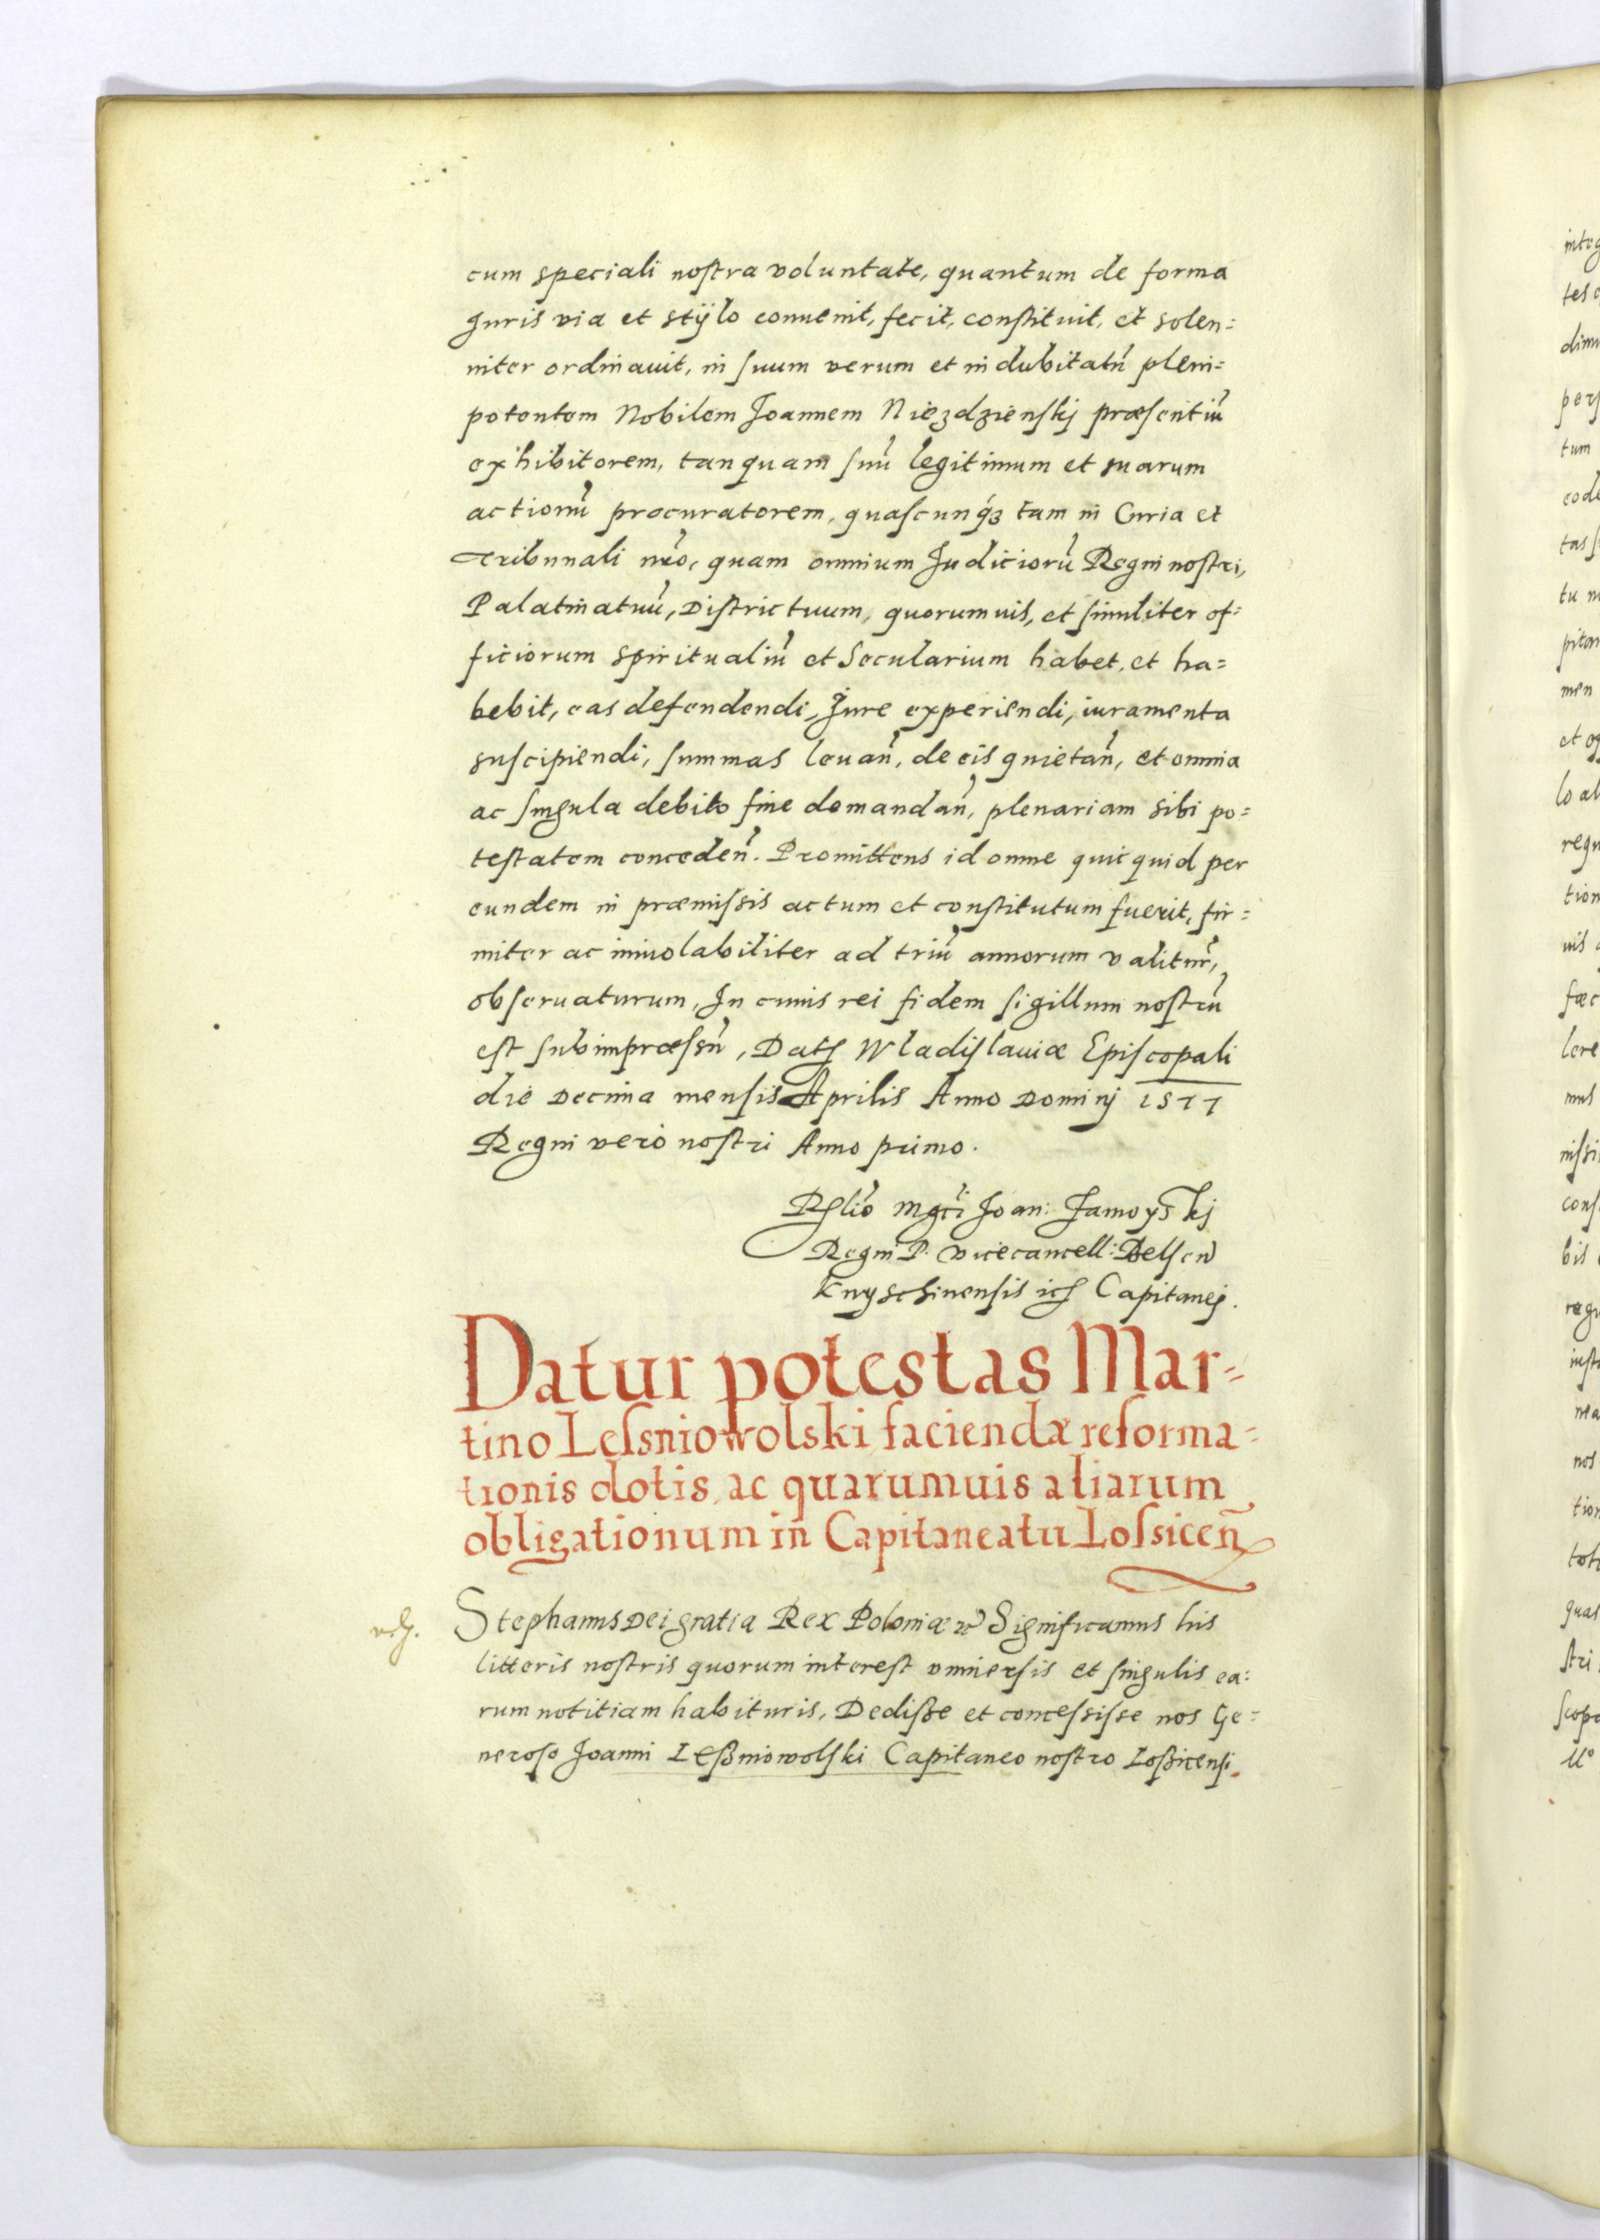 cum speciali nostra voluntate, quantum de forma
Juris via et stÿlo conuenit, fecit, constituit, et solen=
niter ordinauit, in suum verum et indubitatũ pleni=
potentem Nobilem Joannem Niezdzienskj præsentiũ
exhibitorem, tanquam suũ legitimum et suarum
actionũ procuratorem, quascunq́ʒ tam in Curia et
Tribunali nr̃o, quam omnium Judiciorũ Regni nostri,
Palatinatuũ, Districtuum, quorumuis, et similiter of=
ficiorum spiritualiũ et Secularium habet, et ha=
bebit, eas defendendi, Jure experiendi, iuramenta
suscipiendi, summas leuañ, de eis quietañ, et omnia
ac singula debito fine demandañ, plenariam sibi po=
testatem conceden̄. Promittens id omne quicquid per
eundem in præmissis actum et constitutum fuerit, fir=
miter ac inuiolabiliter ad triũ annorum valitur̃,
obseruaturum, In cuius rei fidem sigillum nostrũ
est subimpræssũ, Datꝭ Wladislauiæ Episcopali
die Decima mensis Aprilis Anno Dominj 1577
Regni vero nostri Anno primo.
Rꝭlio̕ mgci̕ Joan: Zamoyskj
Regni P. vicecancell: Belsen̄
Knyschinensis icꝭ Capitanej.
Datur potestas Mar=
tino Lessniowolski faciendæ reforma=
tionis dotis, ac quarumuis aliarum
obligationum in Capitaneatu Lossiceñ
Stephanus Dei gratia Rex Poloniæ ꝛc Significamus his
litteris nostris quorum interest vniuersis et singulis ea:
rum notitiam habituris, Dedisse et concessisse nos Ge=
neroso Joanni Leßniowolski Capitaneo nostro Loßicensi